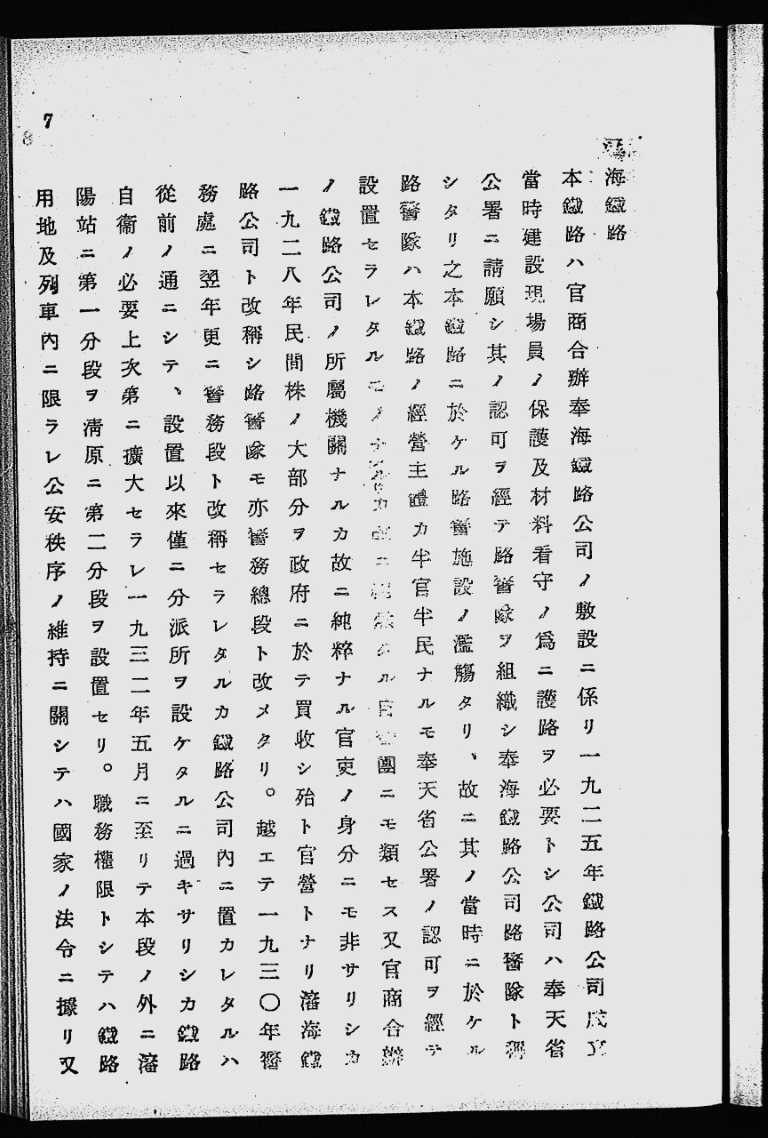 海鐵路
本鐵路ハ官商合辦奉海鐵路公司ノ敷設ニ係リ一九二五年鐵路公司成立
當時建設現場員ノ保護及材料看守ノ爲ニ護路ヲ必要トシ公司ハ奉天省
公署ニ請願シ其ノ認可ヲ經テ路警隊ヲ組織シ奉海鐵路公司路警隊ト稱
シタリ之本鐵路ニ於ケル路警施設ノ濫觴タリ、故ニ其ノ當時ニ於ケル
路警隊ハ本鐵路ノ經營主體カ半官半民ナルモ奉天省公署ノ認可ヲ經テ
設置セラレタルモノナルカ ニ純然タル 團ニモ類セス又官商合辦
ノ鐵路公司ノ所屬機關ナルカ故ニ純粹ナル官吏ノ身分ニモ非サリシカ
一九二八年民間株ノ大部分ヲ政府ニ於テ買收シ殆ト官營トナリ瀋海鐵
路公司ト改稱シ路警隊モ亦警務總段ト改メタリ。越エテ一九三〇年警
務處ニ翌年更ニ警務段ト改稱セラレタルカ鐵路公司內ニ置カレタルハ
從前ノ通ニシテ、設置以來僅ニ分派所ヲ設ケタルニ過キサリシカ鐵路
自衞ノ必要上次第ニ擴大セラレ一九三二年五月ニ至リテ本段ノ外ニ瀋
陽站ニ第一分段ヲ淸原ニ第二分段ヲ設置セリ。職務權限トシテハ鐵路
用地及列車內ニ限ラレ公安秩序ノ維持ニ關シテハ國家ノ法令ニ據リ又
7